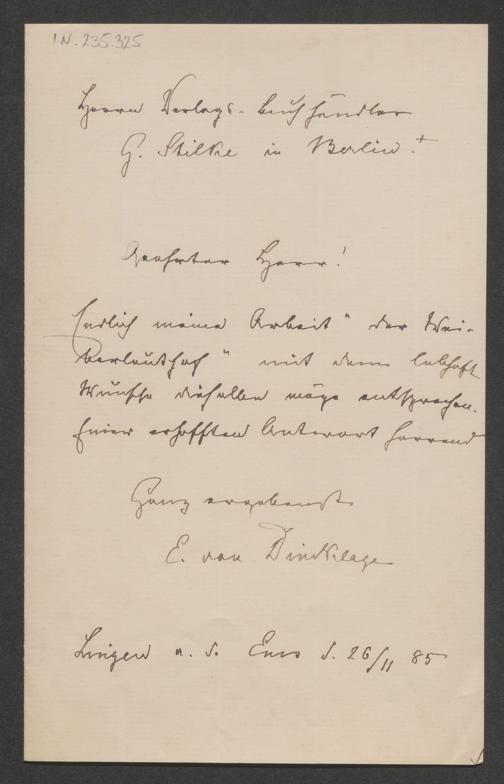 I.N. 235.325
Herrn Verlags-Buchhändler
G. Stilke in Berlin.
Geehrter Herr!
Endlich meine Arbeit "der Wei-
" mit dem lebhaft
Wunsche dieselbe möge entsprechen.
Einer erhofften Antwort harrend
Ganz ergebenst
E. von Dincklage
Lingen a. d. Ems d. 26/11 85